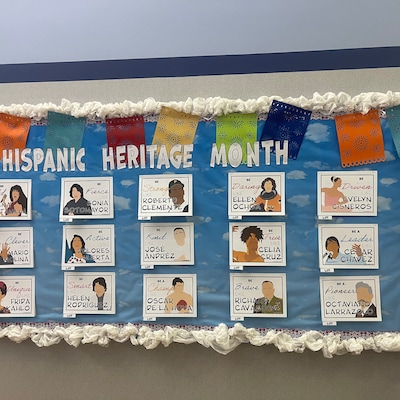 HISPANIC HERITAGE MONTH
Fierce
SONIA
SOTOMAYOR
Strong
ROBERTO
CLEMENTE
Daring
ELLEN
OCHOA
Driven
EVELYN
CISNEROS
Clever
MARIO
MOLINA
Active
DOLORES
HUERTA
Kind
JOSE
ANDREZ
BE
True
CELIA
CRUZ
BE A
Leader
CESAR
CHAVEZ
Unique
FRIDA
KAHLO
Smart
HELEN
RODRIGUEZ
OSCAR
DE LA HOYA
BE
Brave
RICHARD
BE A
Pioneer
OCTAVIANO
LARRAZOLO